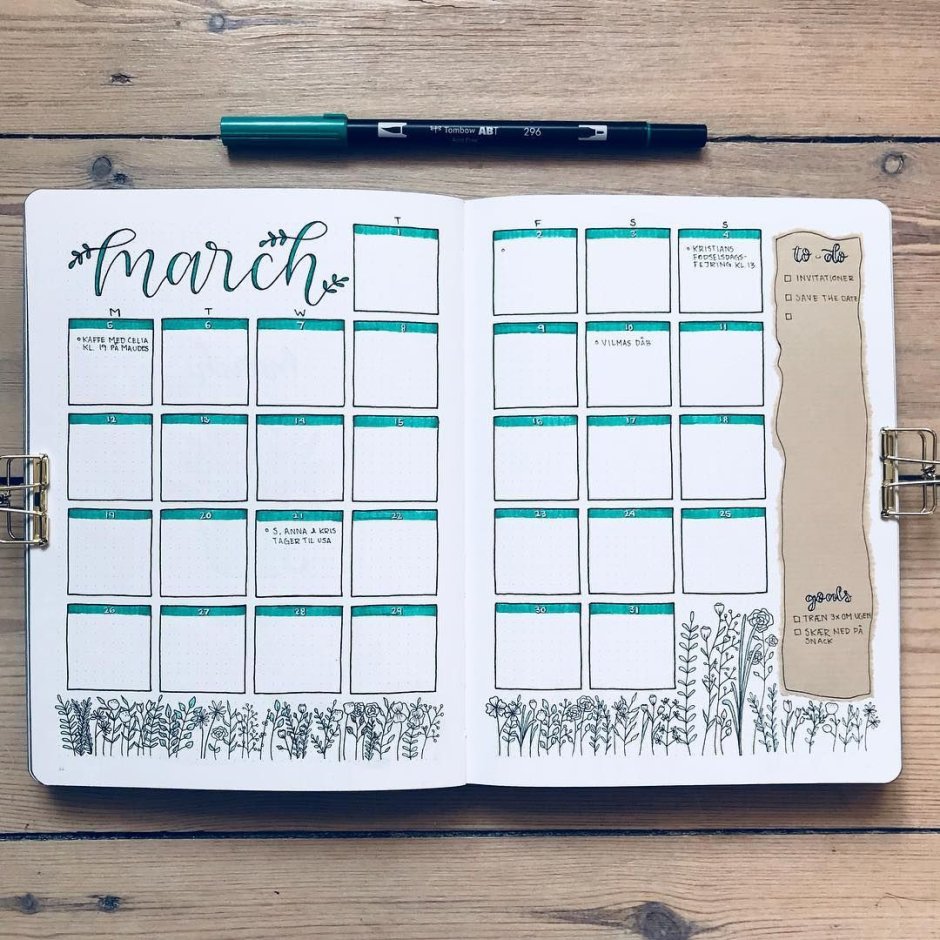 Tombow ABT 296
march
T
F
S
S
1
2
3
4
KRISTIANS
FØDSELSDAGS-
FEJRING KL.13
to-do
INVITATIONER
SAVE THE DATE
M
T
W
5
6
7
8
9
10
11
KAFFE MED CELIA
KL. 19 PÅ MAUDES
VILMAS DÅB
12
13
14
15
16
17
18
19
20
21
22
23
24
25
S, ANNA & KRIS
TAGER TIL USA
26
27
28
29
30
31
goals
TRÆN 3X OM UGEN
SKÆR NED PÅ
SNACK